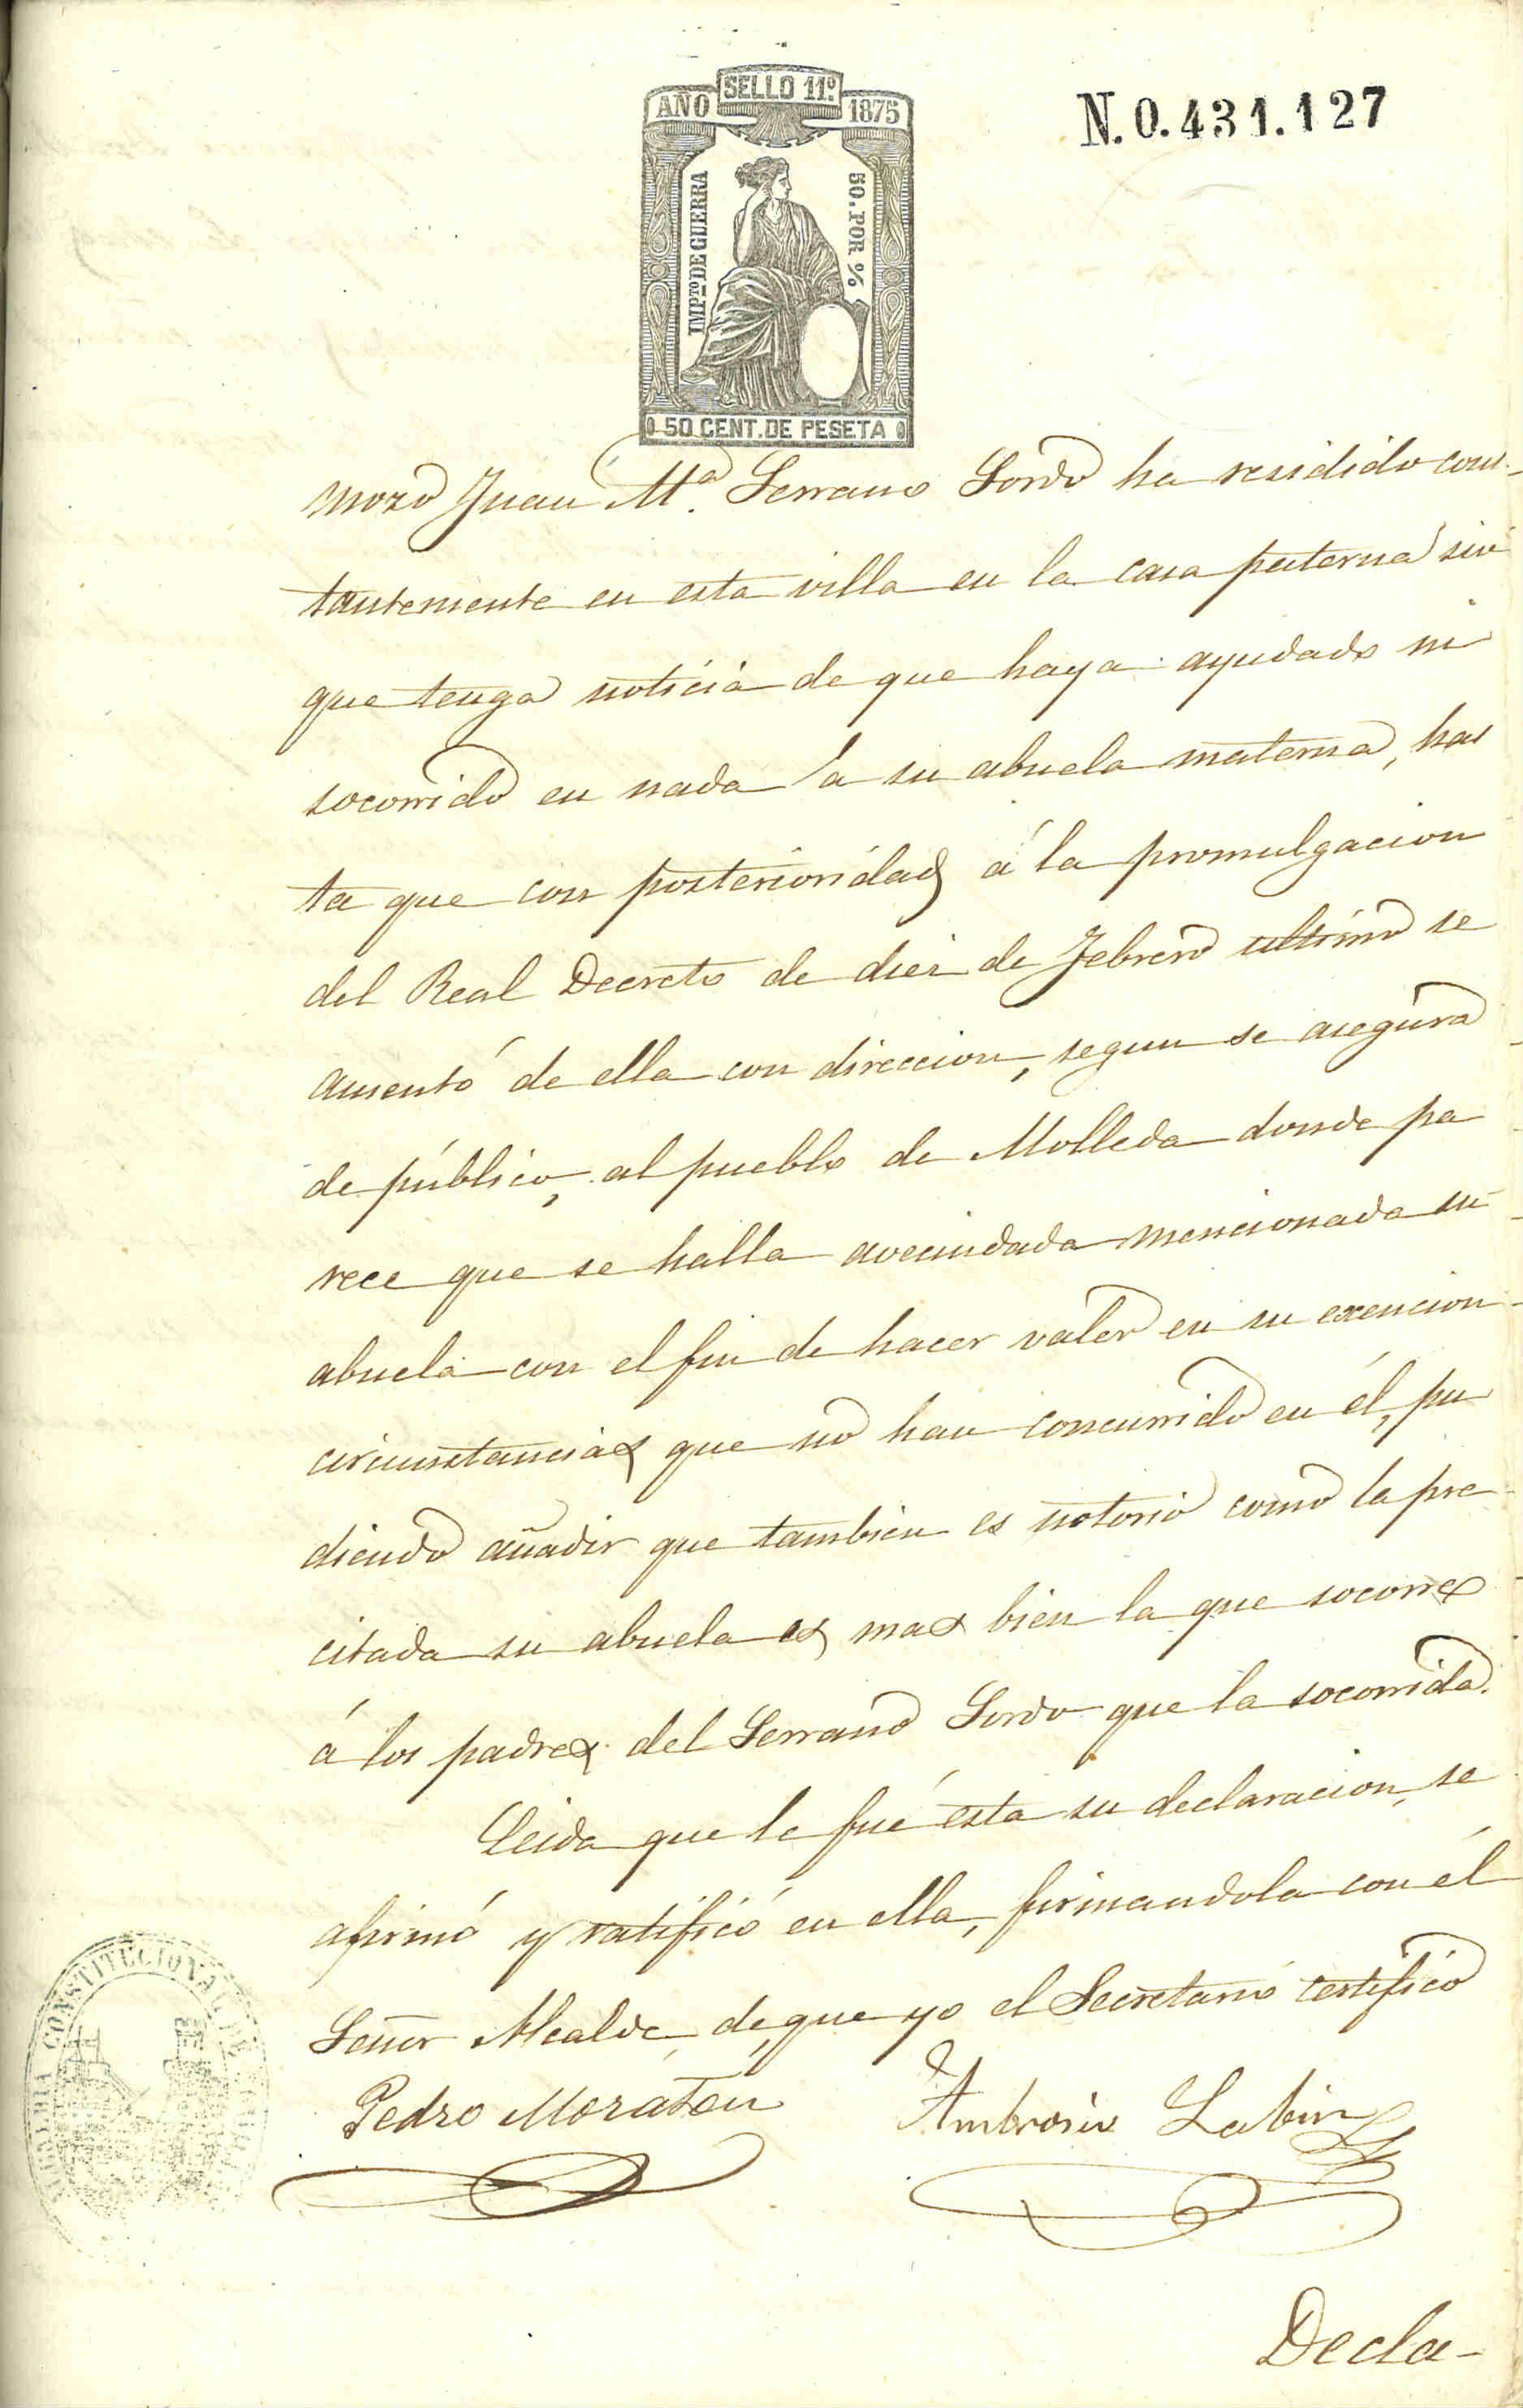 SELLO 11º
AÑO 1875
N. 0.431.127
IMPTO DE GUERRA
50. POR %
50 CENT. DE PESETA
mozo Juan Mª. Serrano Sordo ha residido cons-
tantemente en esta villa en la casa paterna sin
que tenga noticia de que haya ayudado ni
socorrido en nada á su abuela materna, has
ta que con posterioridad á la promulgacion
del Real Decreto de diez de Febrero ultimo se
ausentó de ella con direccion, segun se asegura
de público, al pueblo de Molleda donde pa
rece que se halla avecindada mencionada su
abuela con el fin de hacer valer en su exencion
circunstancias que no han concurrido en él, pu
diendo añadir que tambien es notorio como la pre
citada su abuela es mas bien la que socorre
á los padres del Serrano Sordo que la socorrida.
Leida que le fué esta su declaracion, se
afirmó y ratificó en ella, firmandola con el
Señor Alcalde, de que yo el Secretario certifico
Pedro Moratón Ambrosio Labin
ALCALDIA CONSTITUCIONAL DE
Decla-